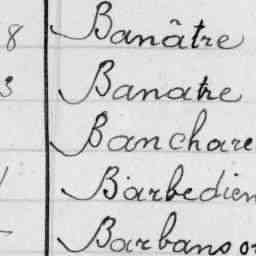 8 Banâtre
3 Banatre
Banchare
Barbedien
Barbanson